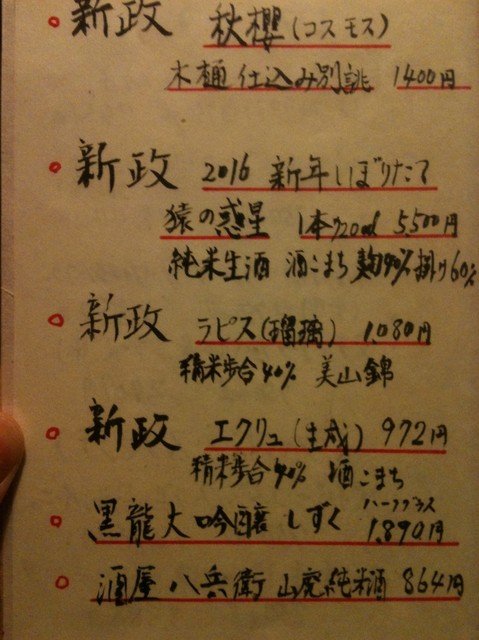 新政 秋櫻(コスモス)
木樋仕込み別誂 1400円
新政 2016 新年しぼりたて
猿の惑星 1本720ml 5,500円
純米生酒 酒こまち 麹40% 掛け60%
新政 ラピス(瑠璃) 1,080円
精米歩合40% 美山錦
新政 エクリュ(生成) 972円
精米歩合40% 酒こまち
黒龍大吟醸 しずく ハーフグラス 1,890円
酒屋八兵衛 山廃純米酒 864円